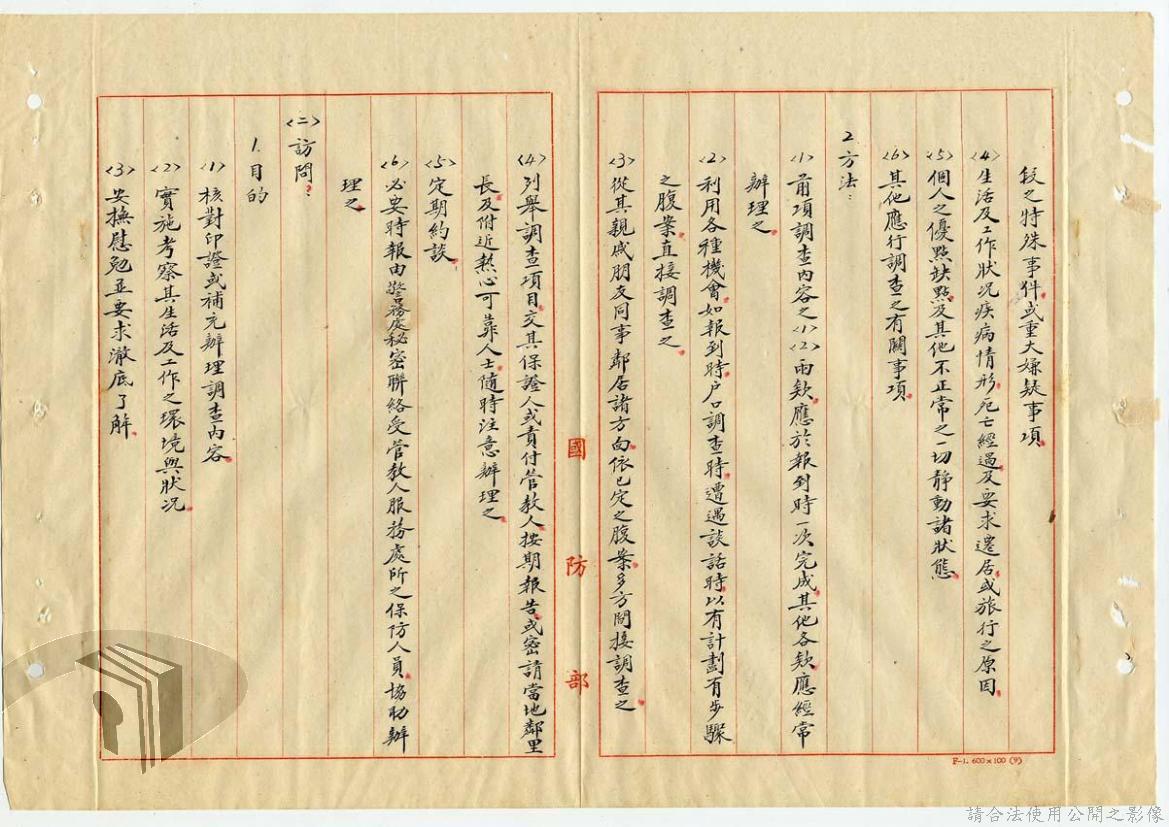 叙之特殊事件或重大嫌疑事項
〈4〉生活及工作狀況疾病情形死亡經過及要求遷居或旅行之原因
〈5〉個人之優點缺點及其他不正常之一切靜動諸狀態
〈6〉其他應行調查之有關事項
2.方法：
〈1〉前項調查內容之〈1〉〈2〉兩欵應於報到時一次完成其他各欵應經常
辦理之
〈2〉利用各種機會如報到時戶口調查時遭遇談話時以有計劃有步驟
之腹案直接調查之
〈3〉從其親戚朋友同事鄰居諸方面依已定之腹案多方間接調查之
〈4〉列舉調查項目交其保證人或責付管教人按期報告或密請當地鄰里
長及附近熱心可靠人士隨時注意辦理之
〈5〉定期約談
〈6〉必要時報由警務處秘密聯絡受管教人服務處所之保防人員協助辦
理之
〈二〉訪問：
1.目的
〈1〉核對印證或補充辦理調查內容
〈2〉實施考察其生活及工作之環境與狀況
〈3〉安撫慰勉並要求澈底了解
國防部
F-1. 600×100 (9)
請合法使用公開之影像